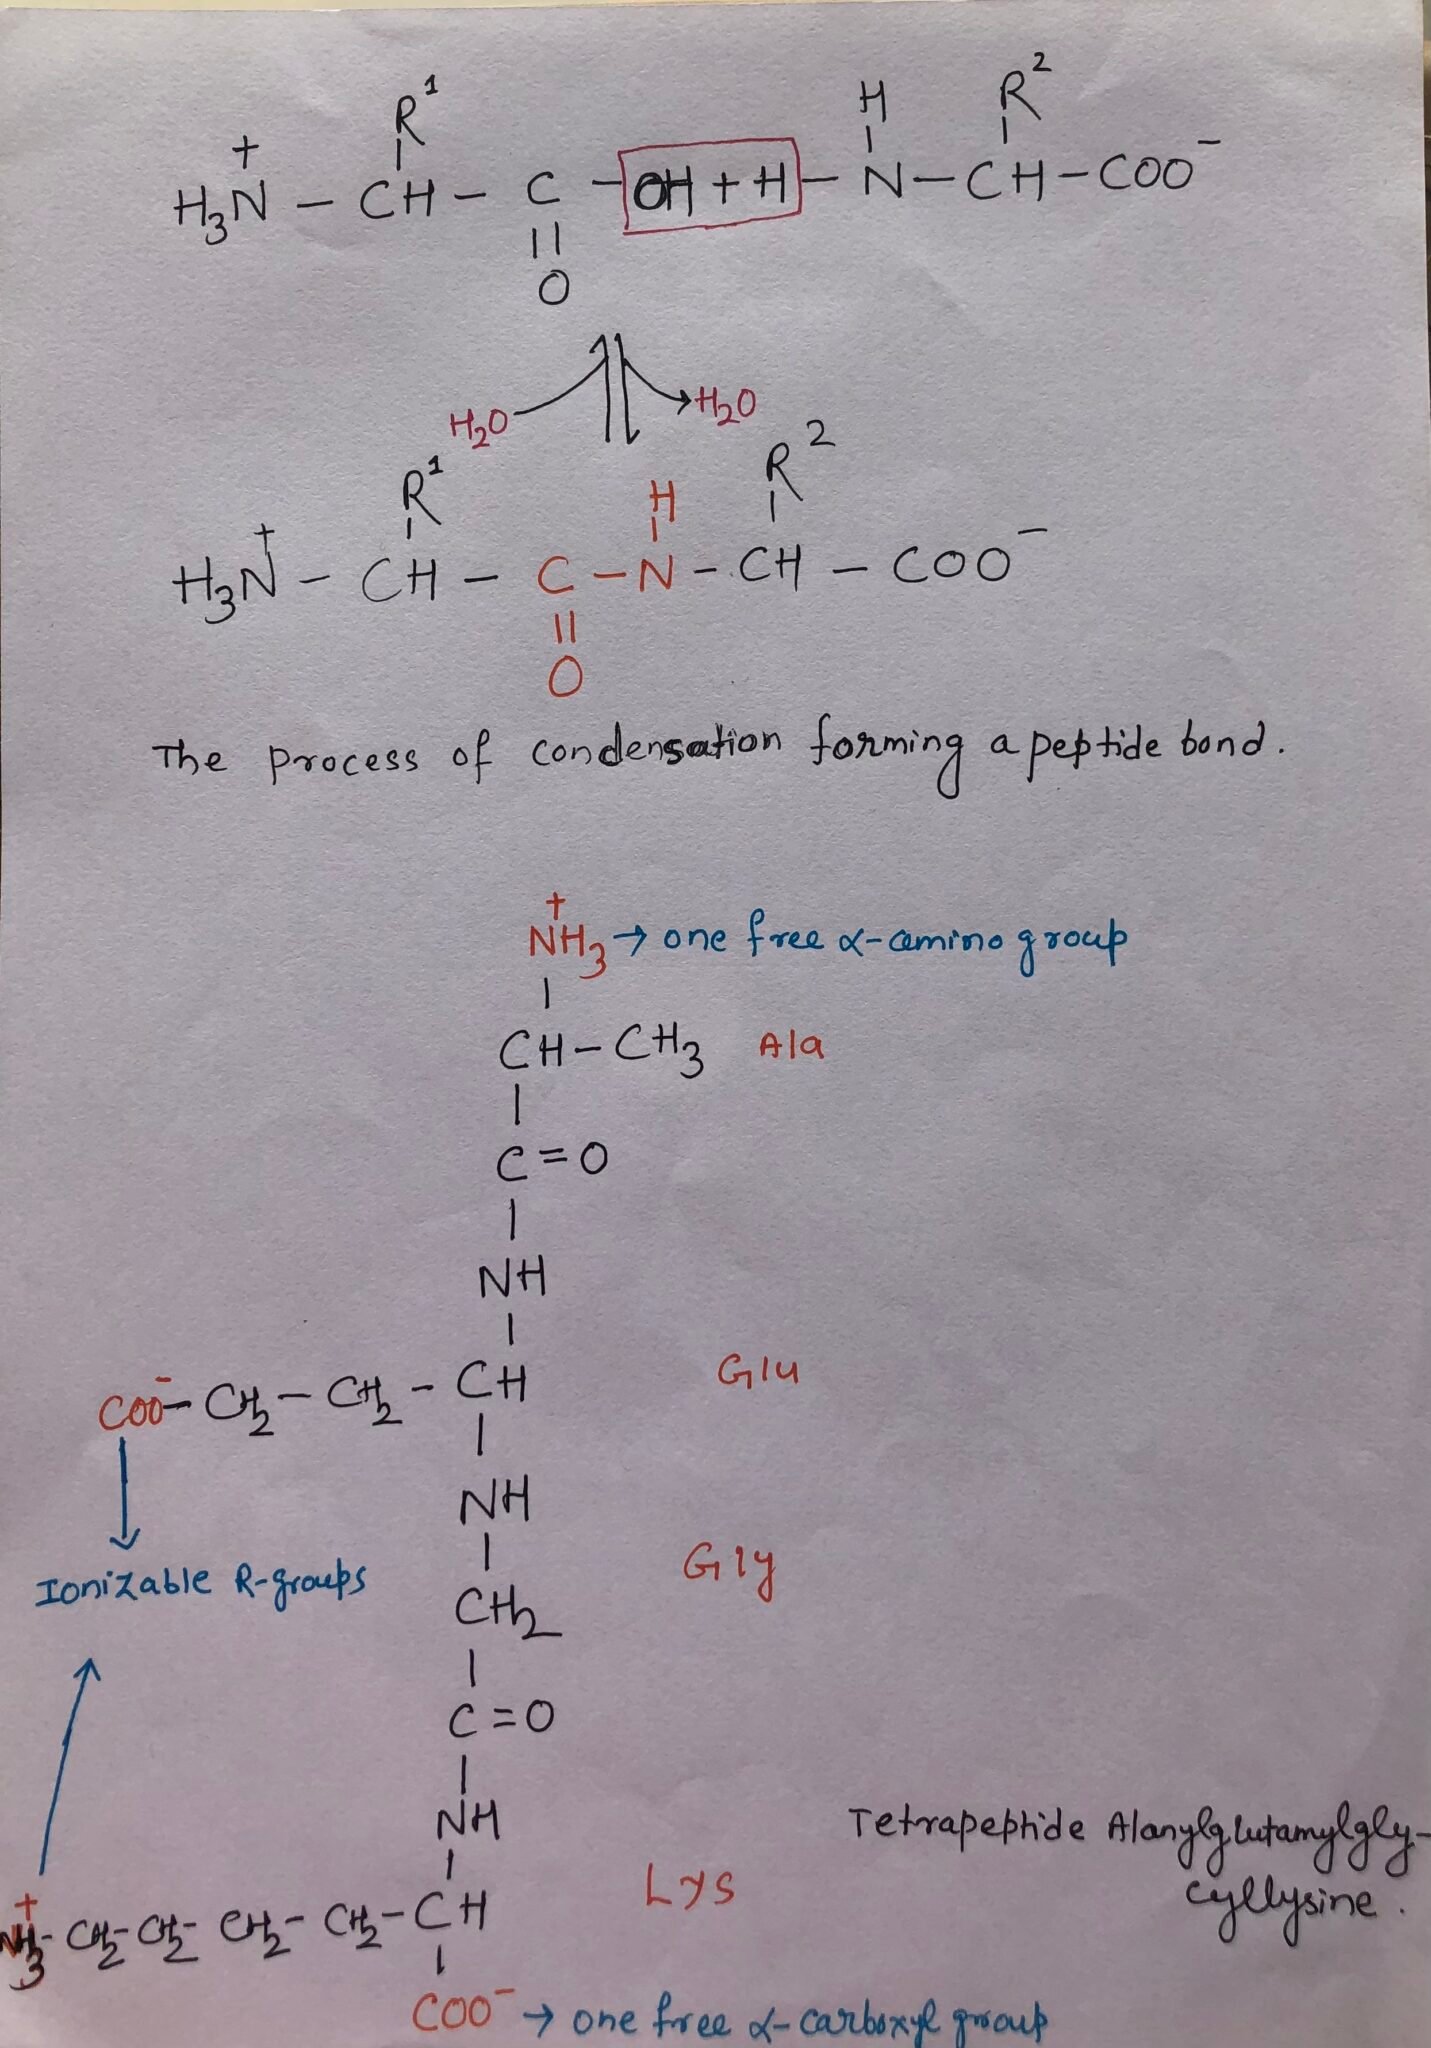 R¹ H R²
H₃N⁺ – CH – C – OH + H – N – CH – COO⁻
||
O
H₂O H₂O
R¹ H R²
H₃N⁺ – CH – C – N – CH – COO⁻
||
O
The process of condensation forming a peptide bond.
⁺NH₃ → one free α-amino group
|
CH – CH₃ Ala
|
C = O
|
NH
|
COO⁻ – CH₂ – CH₂ – CH Glu
|
NH
|
Ionizable R-groups Gly
CH₂
|
C = O
|
NH
|
Tetrapeptide Alanylglutamylgly-
cyllysine.
⁺NH₃ – CH₂ – CH₂ – CH₂ – CH₂ – CH Lys
|
COO⁻ → one free α-carboxyl group